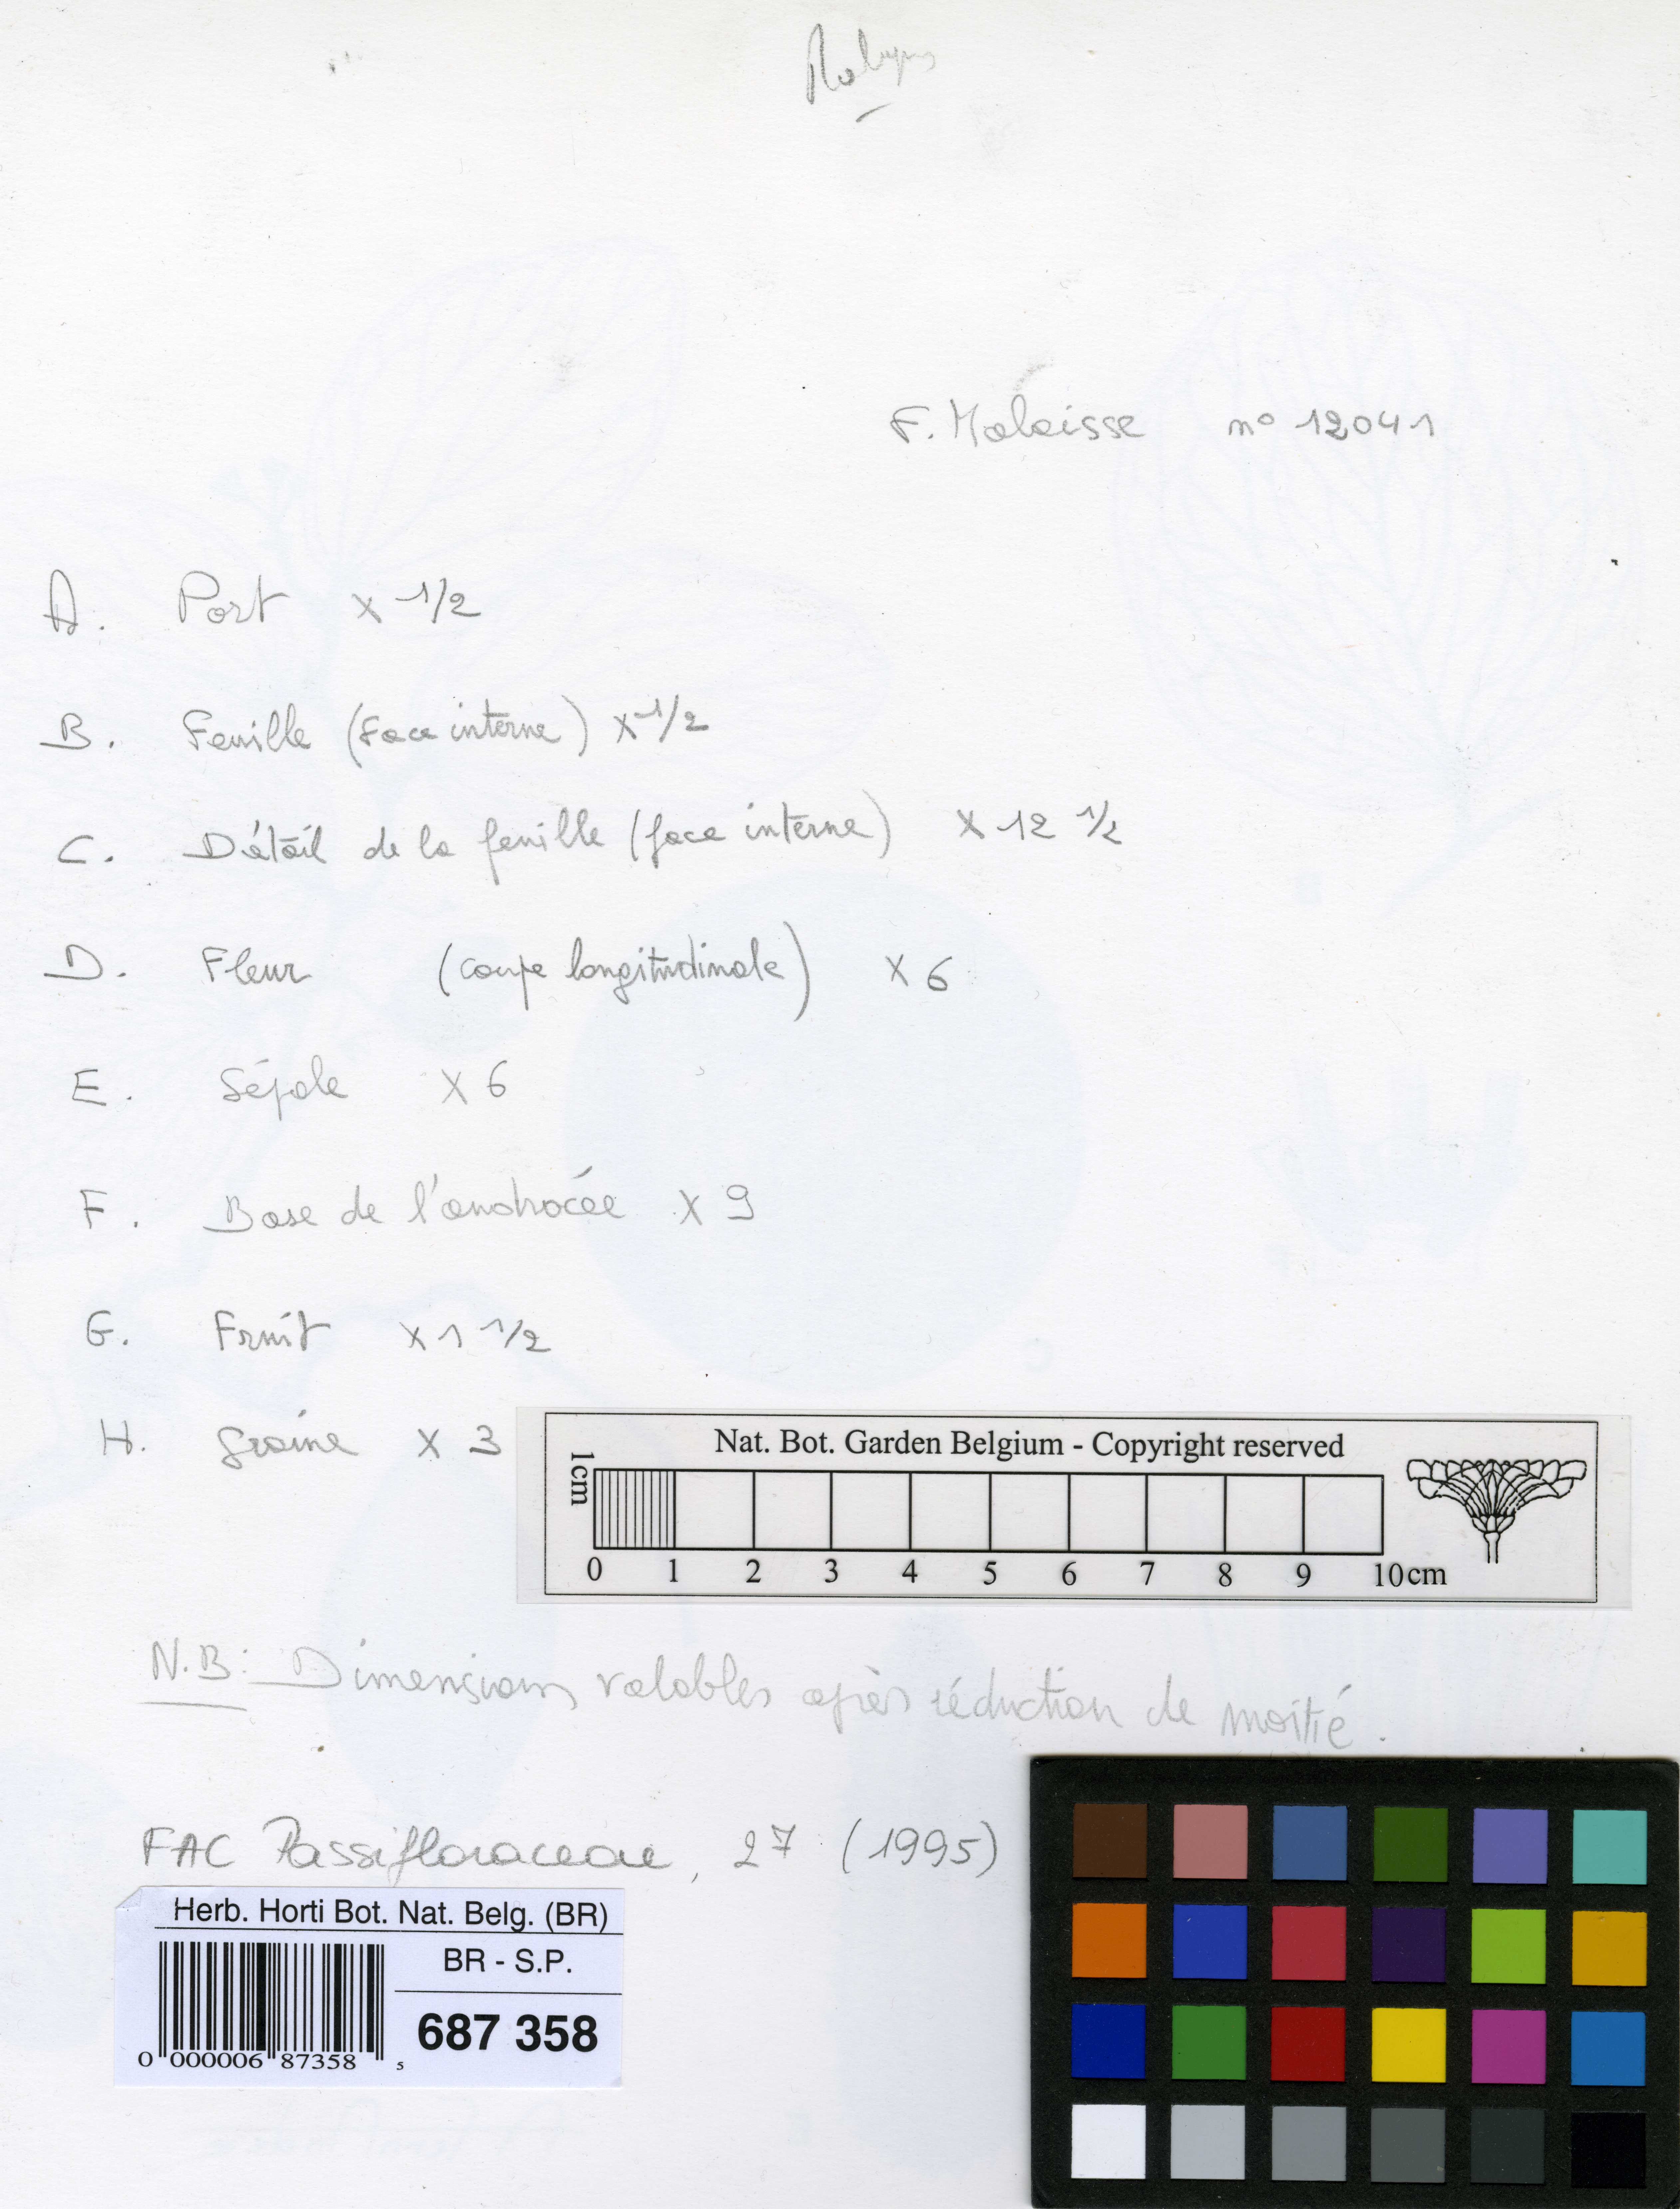 Robyns
F. Malaisse n° 12041
A. Port x 1/2
B. Feuille (face interne) x 1/2
C. Détail de la feuille (face interne) x 12 1/2
D. Fleur (coupe longitudinale) x 6
E. Sépale x 6
F. Base de l'androcée x 9
G. Fruit x 1 1/2
H. graine x 3
Nat. Bot. Garden Belgium - Copyright reserved
1cm
0 1 2 3 4 5 6 7 8 9 10cm
N.B: Dimensions valables après réduction de moitié.
FAC Passifloraceae, 27 (1995)
Herb. Horti Bot. Nat. Belg. (BR)
BR - S.P.
687 358
0 000006 87358 5